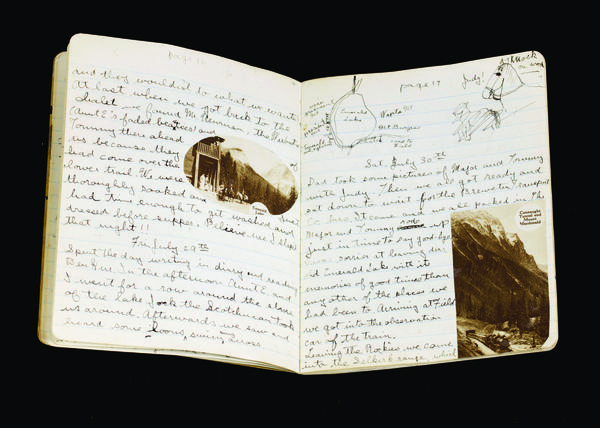 page 16
and they wouldn't do what we wanted.
At last when we got back to the
Chalet we found Mr.
Aunt E's faded beauties and
Tommy there ahead of
us because they
had come over the
lower trail. We were
thoroughly soaked and just
had time enough to get washed and
dressed before supper. Believe me I slept
that night!!
Fri. July 29th
Spent the day writing in diary and reading
Ben Hur. In the afternoon Aunt E and
I went for a row around the shore
of the lake. Jock the Scotchman took
us around. Afterwards we saw and
heard some loons, swimming across
page 17
Judy!
Knock
on wood
Emerald
Lake
Wapta
Mt Burgess
Sat. July 30th
Dad took some pictures of Major and Tommy
with Judy. Then we all got ready and
sat down to wait for the Brewster Transport
Co. bus. It came and we all packed in.
Major and Tommy rode up
just in time to say good-bye
I was sorry at leaving dear
old Emerald Lake with its
memories of good times than
any other of the places we
had been to. Arriving at Field
we got into the observation
car of the train.
Leaving the Rockies we came
into the Selkirk range, which
Connaught
Tunnel and
Mount
Macdonald